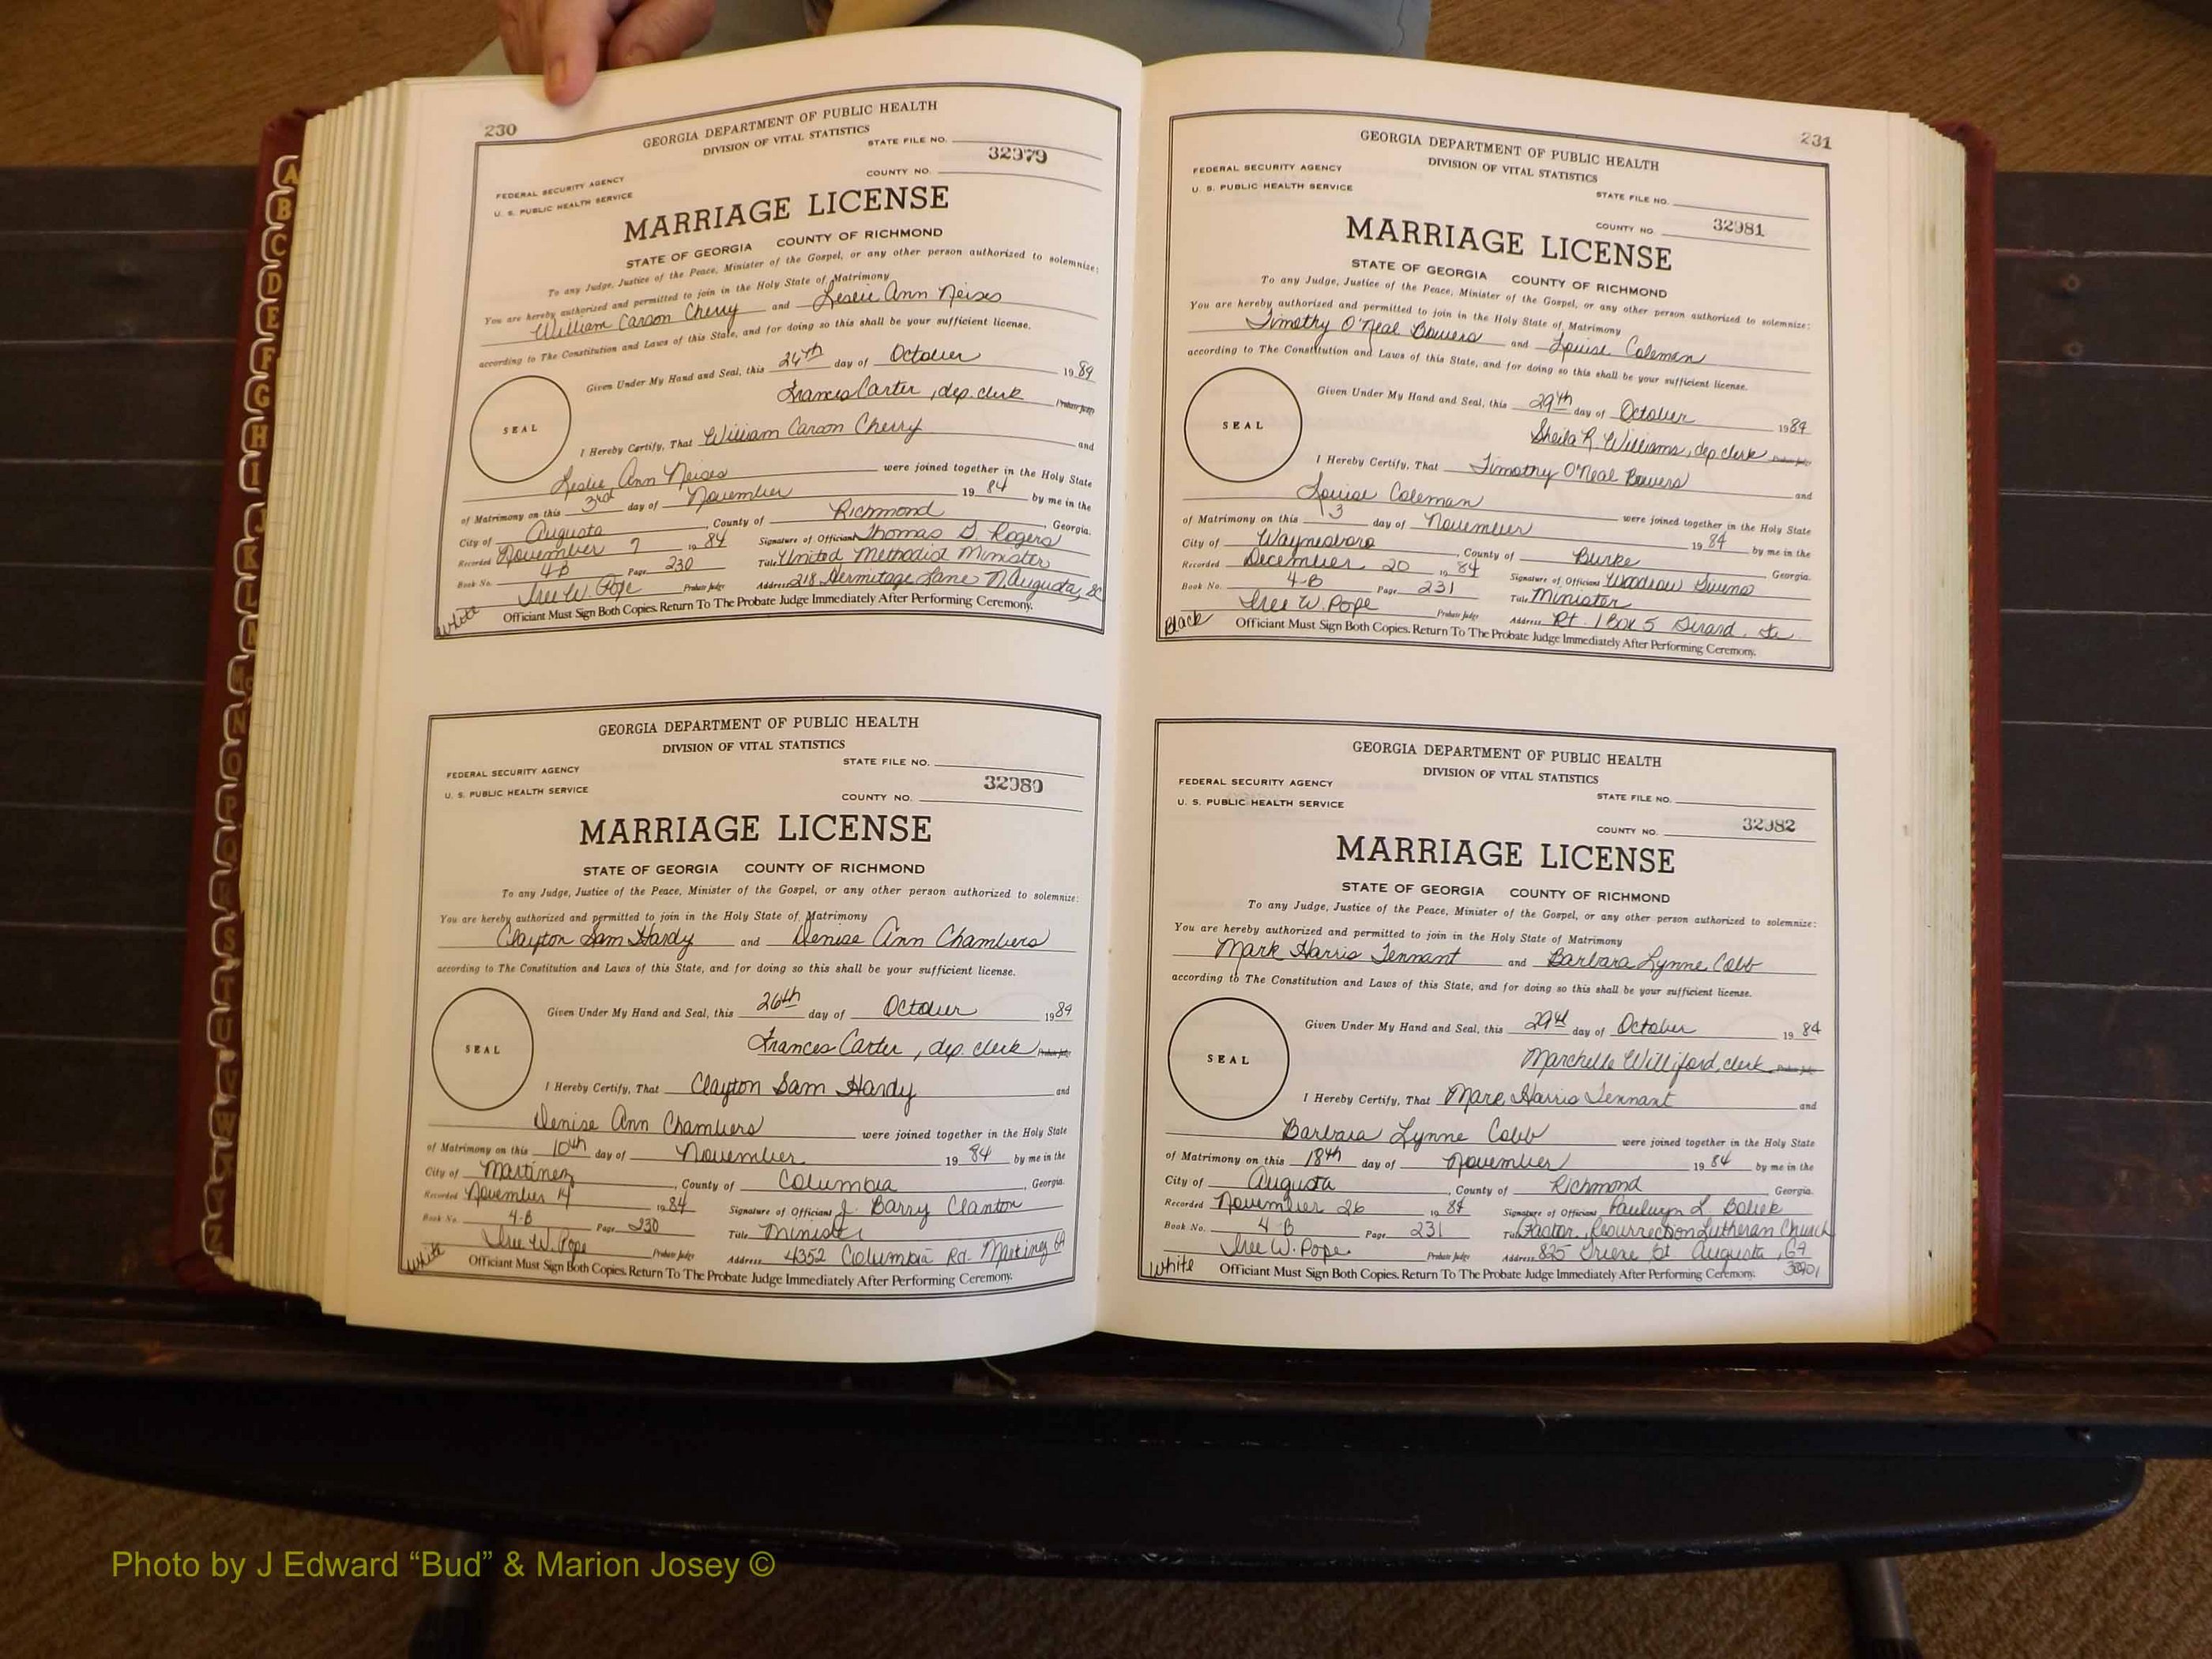 230
GEORGIA DEPARTMENT OF PUBLIC HEALTH
DIVISION OF VITAL STATISTICS
STATE FILE NO.
32979
FEDERAL SECURITY AGENCY
COUNTY NO.
U. S. PUBLIC HEALTH SERVICE
MARRIAGE LICENSE
STATE OF GEORGIA COUNTY OF RICHMOND
To any Judge, Justice of the Peace, Minister of the Gospel, or any other person authorized to solemnize:
You are hereby authorized and permitted to join in the Holy State of Matrimony
William Carson Cherry and Leslie Ann Neises
according to The Constitution and Laws of this State, and for doing so this shall be your sufficient license.
Given Under My Hand and Seal, this 24th day of October 1984
Frances Carter, dep. clerk Probate Judge
SEAL
I Hereby Certify, That William Carson Cherry and
Leslie Ann Neises were joined together in the Holy State
of Matrimony on this 3rd day of November 19 84 by me in the
City of Augusta, County of Richmond, Georgia.
Recorded November 7 19 84 Signature of Officiant Thomas G Rogers
Book No. 4-B Page 230 Title United Methodist Minister
Iree W. Pope Probate Judge Address 218 Hermitage Lane N. Augusta, SC
White Officiant Must Sign Both Copies. Return To The Probate Judge Immediately After Performing Ceremony.
GEORGIA DEPARTMENT OF PUBLIC HEALTH
DIVISION OF VITAL STATISTICS
STATE FILE NO.
FEDERAL SECURITY AGENCY
32980
U. S. PUBLIC HEALTH SERVICE
COUNTY NO.
MARRIAGE LICENSE
STATE OF GEORGIA COUNTY OF RICHMOND
To any Judge, Justice of the Peace, Minister of the Gospel, or any other person authorized to solemnize:
You are hereby authorized and permitted to join in the Holy State of Matrimony
Clayton Sam Hardy and Denise Ann Chambers
according to The Constitution and Laws of this State, and for doing so this shall be your sufficient license.
Given Under My Hand and Seal, this 26th day of October 1984
Frances Carter, dep. clerk Probate Judge
SEAL
I Hereby Certify, That Clayton Sam Hardy and
Denise Ann Chambers were joined together in the Holy State
of Matrimony on this 10th day of November 19 84 by me in the
City of Martinez, County of Columbia, Georgia.
Recorded November 14 1984 Signature of Officiant J. Barry Clanton
Book No. 4-B Page 230 Title Minister
Iree W. Pope Probate Judge Address 4352 Columbia Rd. Martinez GA
White Officiant Must Sign Both Copies. Return To The Probate Judge Immediately After Performing Ceremony.
231
GEORGIA DEPARTMENT OF PUBLIC HEALTH
DIVISION OF VITAL STATISTICS
FEDERAL SECURITY AGENCY
U. S. PUBLIC HEALTH SERVICE
STATE FILE NO.
COUNTY NO. 32981
MARRIAGE LICENSE
STATE OF GEORGIA COUNTY OF RICHMOND
To any Judge, Justice of the Peace, Minister of the Gospel, or any other person authorized to solemnize:
You are hereby authorized and permitted to join in the Holy State of Matrimony
Timothy O'Neal Bowers and Louise Coleman
according to The Constitution and Laws of this State, and for doing so this shall be your sufficient license.
Given Under My Hand and Seal, this 29th day of October 1984
Sheila R. Williams, dep. clerk Probate Judge
SEAL
I Hereby Certify, That Timothy O'Neal Bowers and
Louise Coleman were joined together in the Holy State
of Matrimony on this 13 day of November 19 84 by me in the
City of Waynesboro, County of Burke, Georgia.
Recorded December 20 19 84 Signature of Officiant Woodrow
Book No. 4-B Page 231 Title Minister
Iree W. Pope Probate Judge Address Rt. 1 Box 5 Girard, Ga
Black Officiant Must Sign Both Copies. Return To The Probate Judge Immediately After Performing Ceremony.
GEORGIA DEPARTMENT OF PUBLIC HEALTH
DIVISION OF VITAL STATISTICS
FEDERAL SECURITY AGENCY
STATE FILE NO.
U. S. PUBLIC HEALTH SERVICE
COUNTY NO. 32982
MARRIAGE LICENSE
STATE OF GEORGIA COUNTY OF RICHMOND
To any Judge, Justice of the Peace, Minister of the Gospel, or any other person authorized to solemnize:
You are hereby authorized and permitted to join in the Holy State of Matrimony
Mark Harris Tennant and Barbara Lynne Cobb
according to The Constitution and Laws of this State, and for doing so this shall be your sufficient license.
Given Under My Hand and Seal, this 29th day of October 19 84
Marchelle Williford, clerk Probate Judge
SEAL
I Hereby Certify, That Marc Harris Tennant and
Barbara Lynne Cobb were joined together in the Holy State
of Matrimony on this 18th day of November 19 84 by me in the
City of Augusta, County of Richmond, Georgia.
Recorded November 26 19 84 Signature of Officiant L. Boliek
Book No. 4-B Page 231 Title Pastor, Resurrection Lutheran Church
Iree W. Pope Probate Judge Address 825 Greene St Augusta, GA
30901
White Officiant Must Sign Both Copies. Return To The Probate Judge Immediately After Performing Ceremony.
A
B
C
D
E
F
G
H
I
J
K
L
M
Mc
N
O
P
Q
R
S
T
U
V
W
Y
Z
Photo by J Edward “Bud” & Marion Josey ©